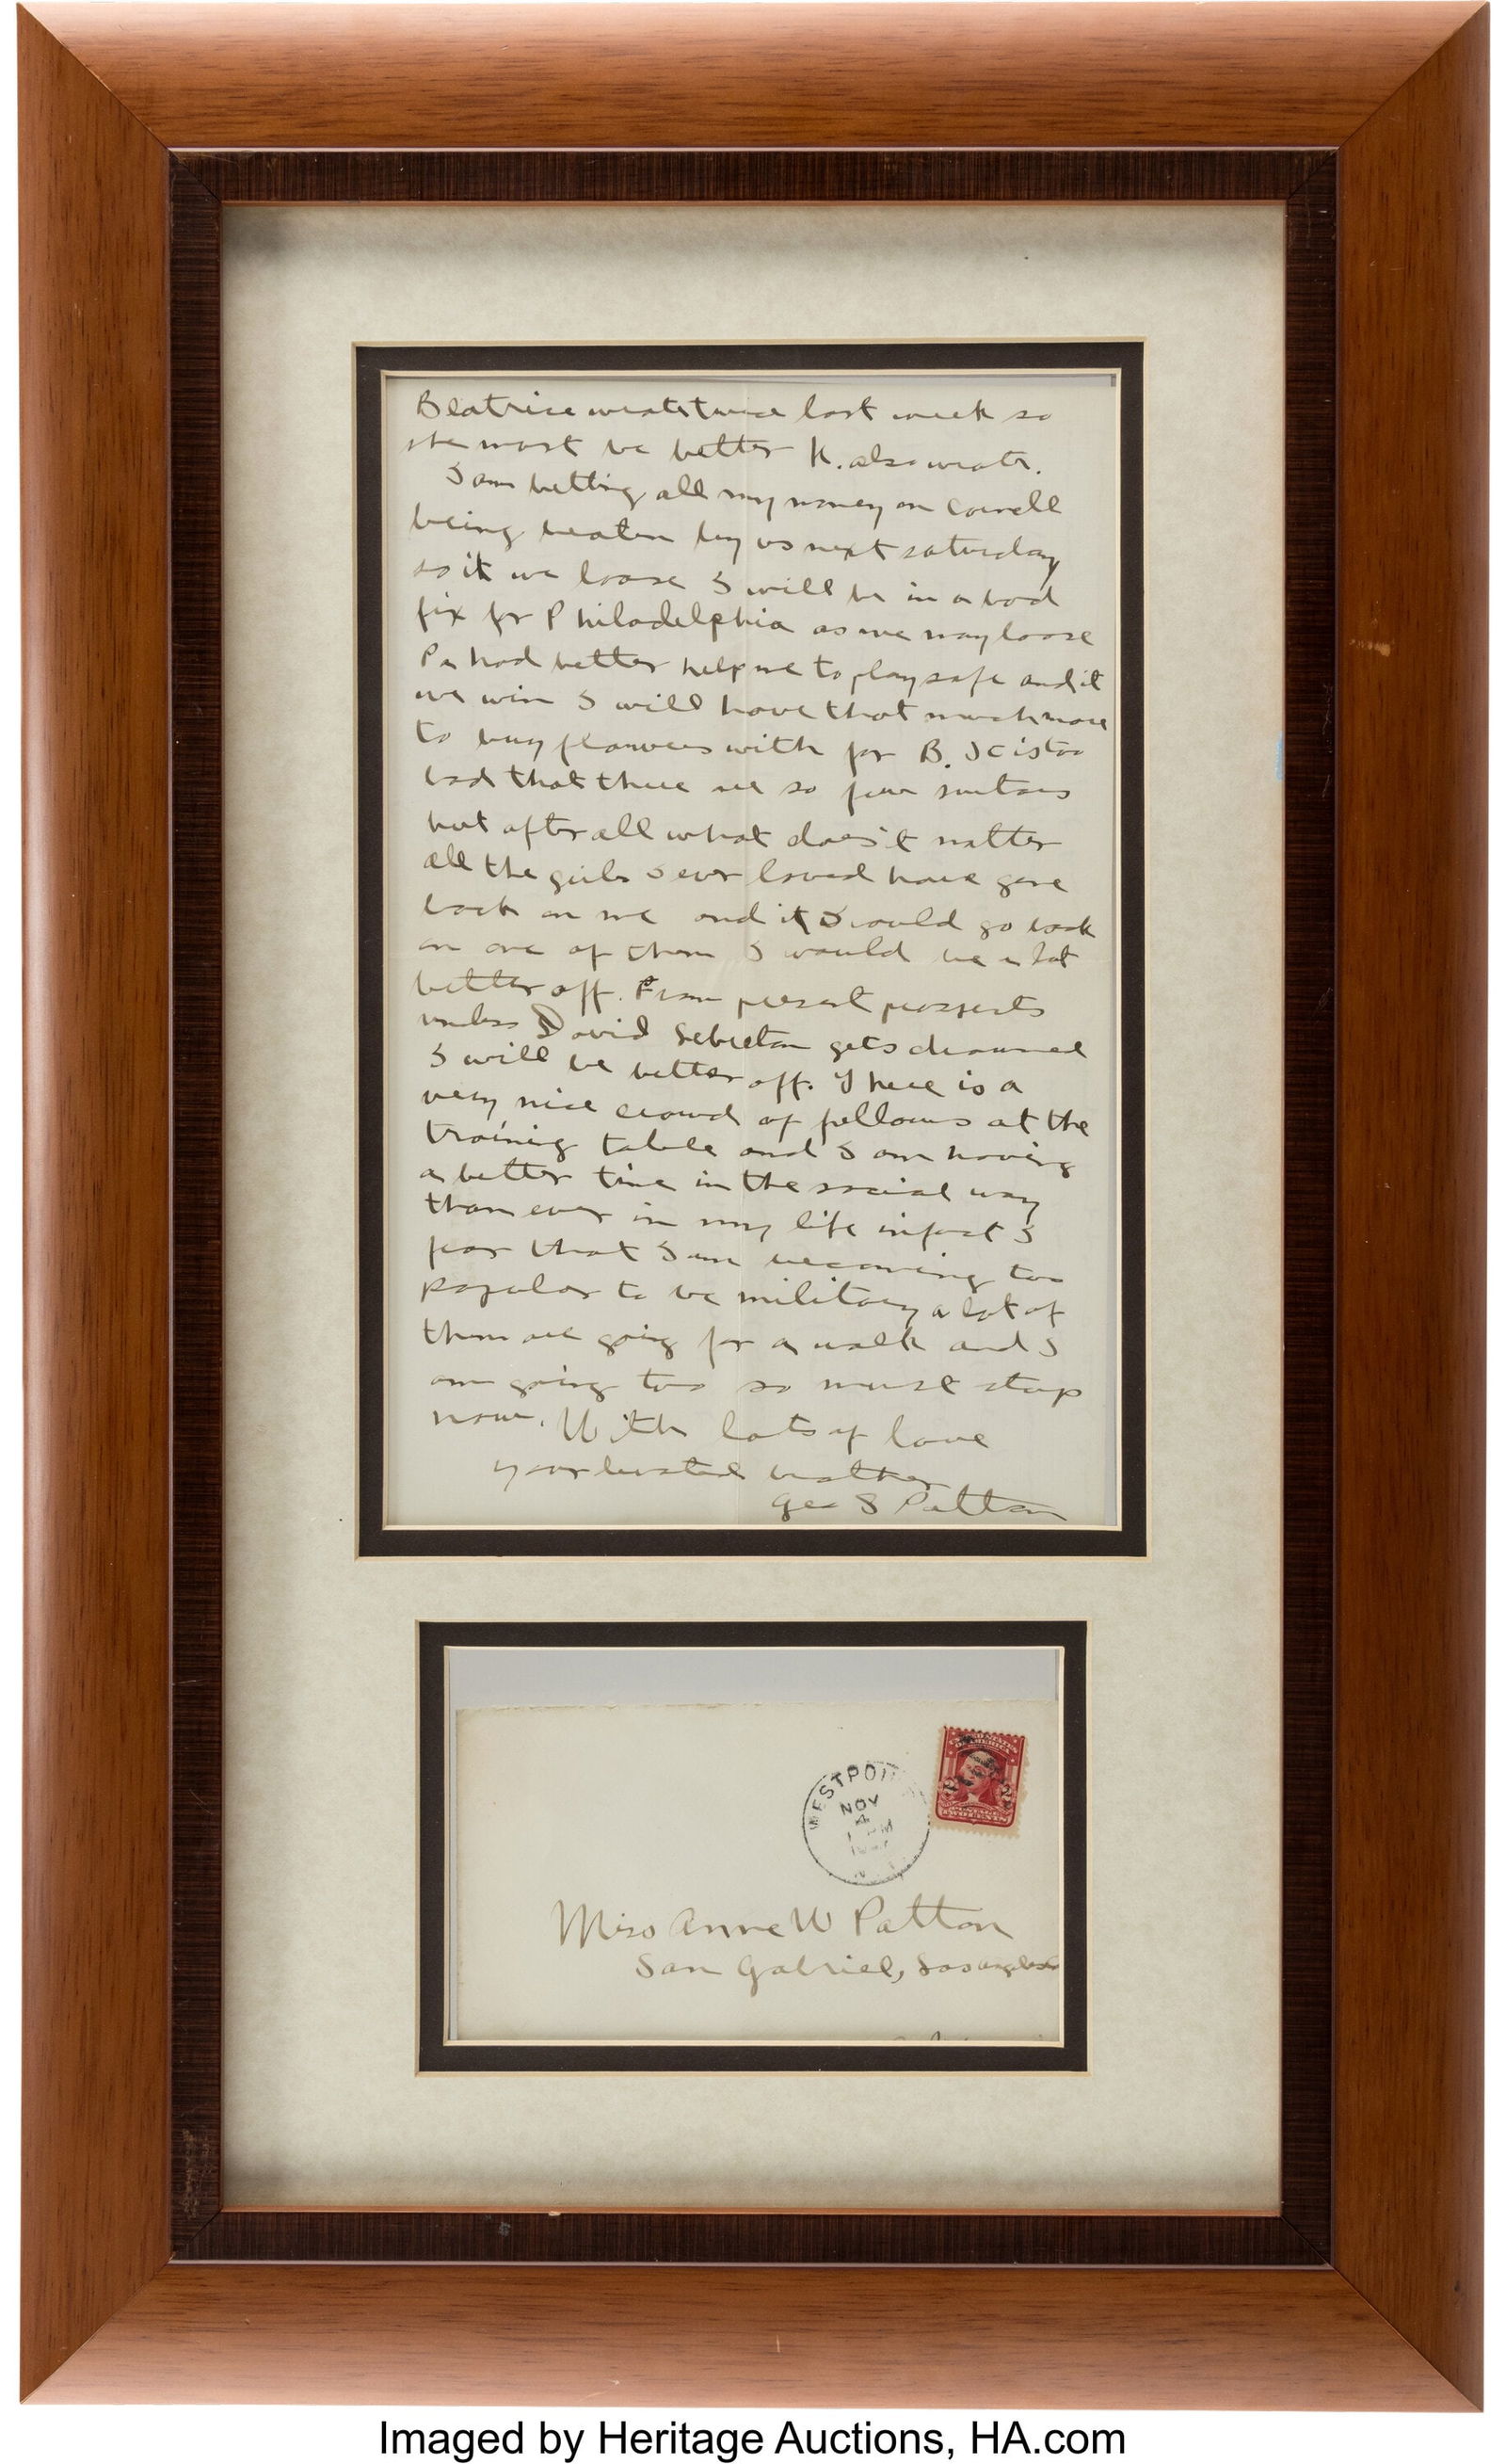 Beatrice wrote twice last week so
she must be better K. also wrote.
I am betting all my money on Cornell
being beaten by us next saturday
so if we loose I will be in a bad
fix for Philadelphia as we may loose
Pa had better help me to play safe and if
we win I will have that much more
to buy flowers with for B. It is too
bad that there are so few suitors
but after all what does it matter
all the girls I ever loved have gone
back on me and if I could go back
on one of them I would be a lot
better off. From present prospects
unless David gets drowned
I will be better off. There is a
very nice crowd of fellows at the
training table and I am having
a better time in the social way
than ever in my life infact I
fear that I am becoming too
popular to be military a lot of
them are going for a walk and I
am going too so must stop
now. With lots of love
your brother
Geo S Patton
WESTPOI
NOV
4
UNITED STATES
OF AMERICA
2 2
POSTAGE
TWO CENTS
Miss Anne W Patton
San Gabriel, Los Angeles
Imaged by Heritage Auctions, HA.com